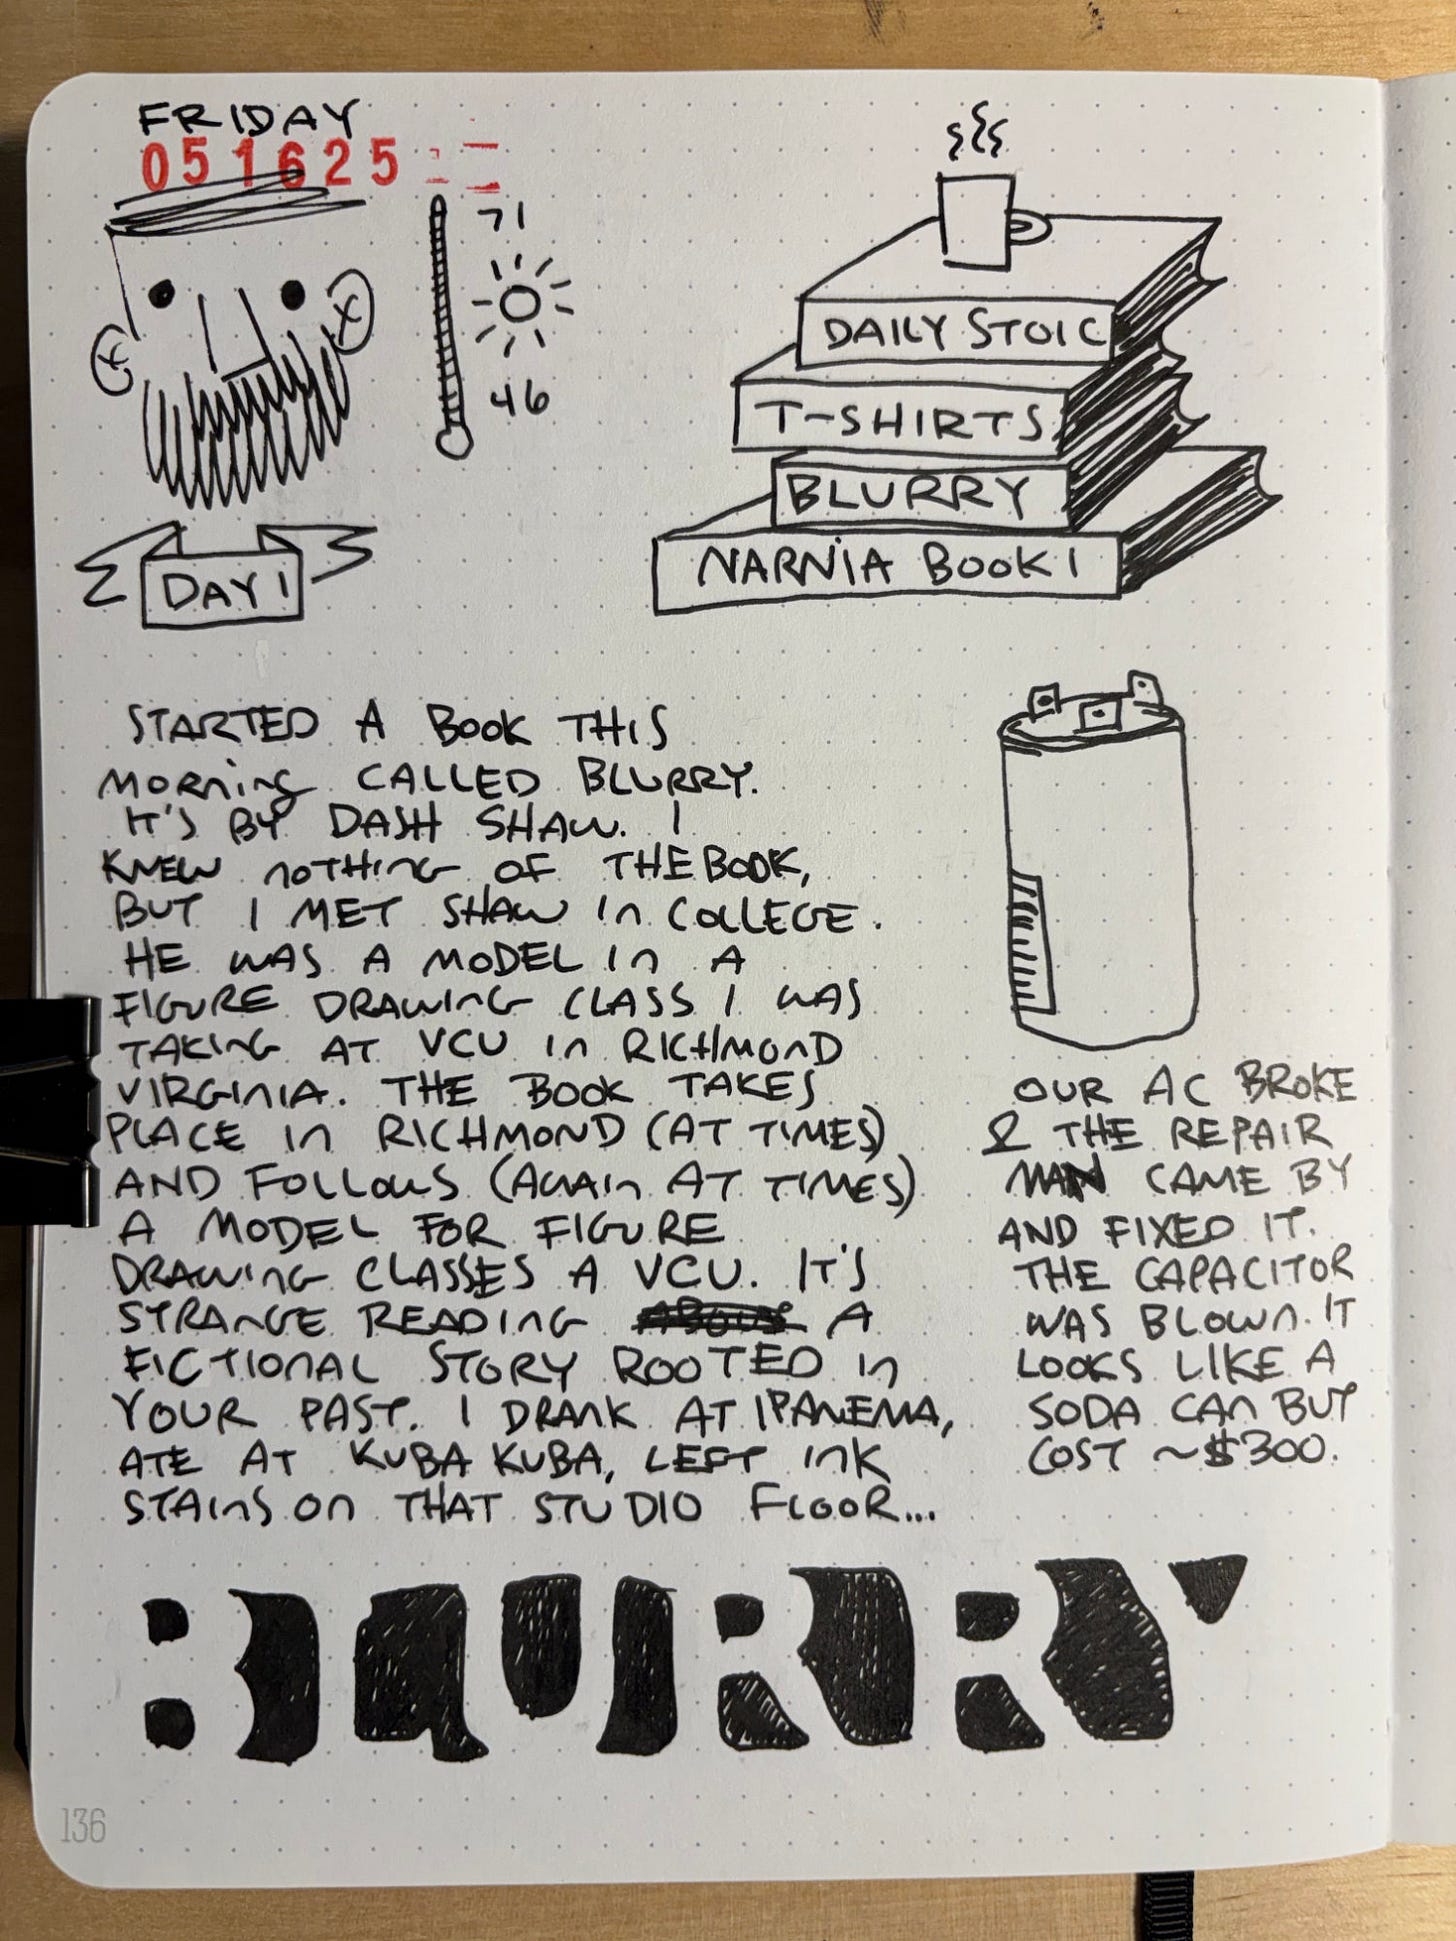 FRIDAY
051625
71
46
DAY 1
DAILY STOIC
T-SHIRTS
BLURRY
NARNIA BOOK 1
STARTED A BOOK THIS
MORNING CALLED BLURRY.
IT'S BY DASH SHAW. I
KNEW NOTHING OF THE BOOK,
BUT I MET SHAW IN COLLEGE.
HE WAS A MODEL IN A
FIGURE DRAWING CLASS I WAS
TAKING AT VCU IN RICHMOND
VIRGINIA. THE BOOK TAKES
PLACE IN RICHMOND (AT TIMES)
AND FOLLOWS (AGAIN AT TIMES)
A MODEL FOR FIGURE
DRAWING CLASSES A VCU. IT'S
STRANGE READING A
FICTIONAL STORY ROOTED IN
YOUR PAST. I DRANK AT IPANEMA,
ATE AT KUBA KUBA, LEFT INK
STAINS ON THAT STUDIO FLOOR...
OUR AC BROKE
& THE REPAIR
MAN CAME BY
AND FIXED IT.
THE CAPACITOR
WAS BLOWN. IT
LOOKS LIKE A
SODA CAN BUT
COST ~$300.
BLURRY
136